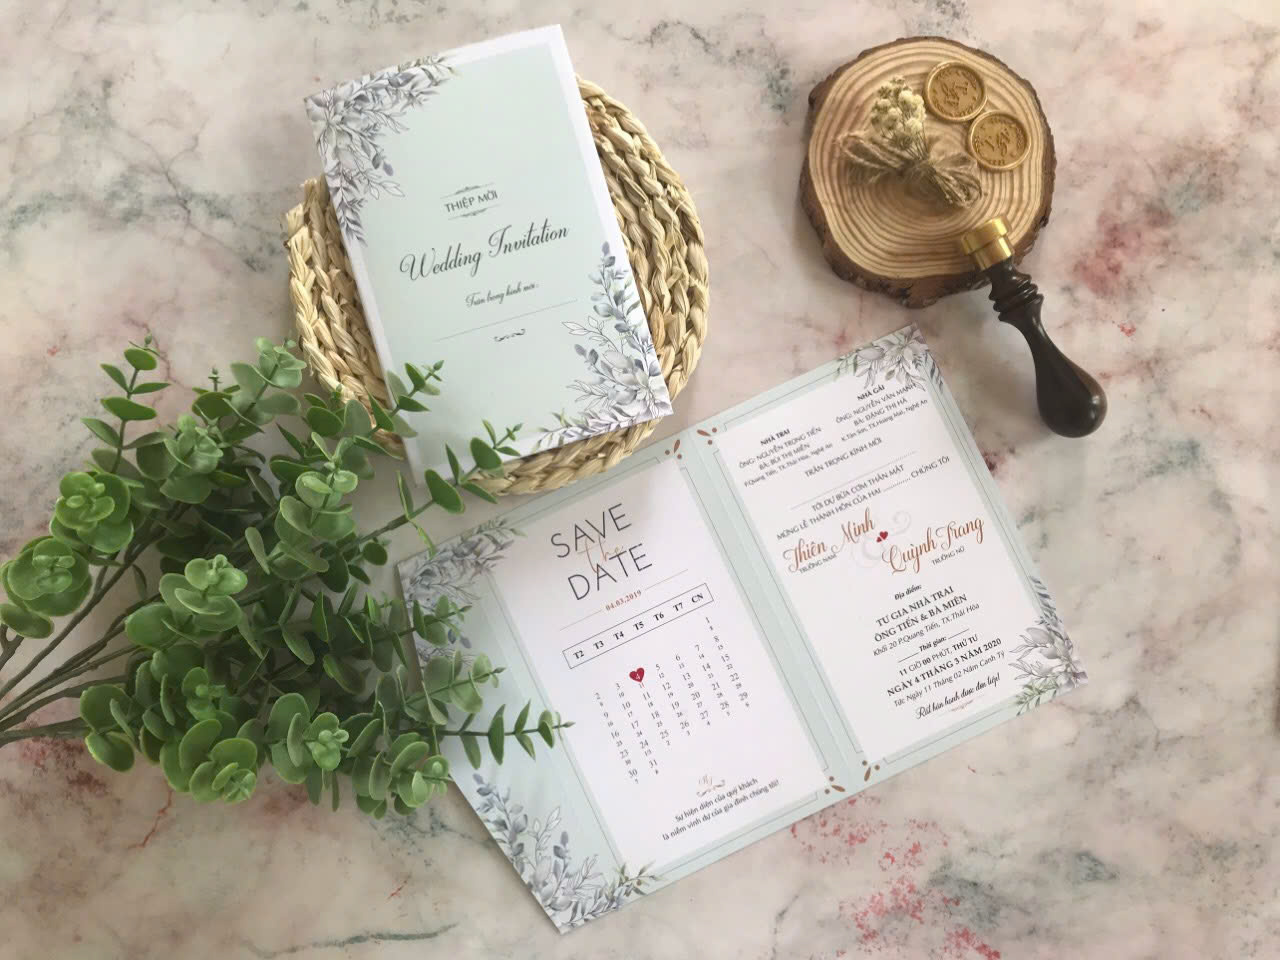 THIỆP MỜI
Wedding Invitation
Trân trọng kính mời
SAVE
the
DATE
04.03.2019
T2 T3 T4 T5 T6 T7 CN
1
2 4 5 6 7 8
9 10 11 12 13 14 15
16 17 18 19 20 21 22
23 24 25 26 27 28 29
30 31
Sự hiện diện của quý khách
là niềm vinh dự của gia đình chúng tôi!
NHÀ TRAI
ÔNG: NGUYỄN TRỌNG TIẾN
BÀ: BÙI THỊ MIÊN
P.Quang Tiến, TX.Thái Hòa, Nghệ An
NHÀ GÁI
ÔNG: NGUYỄN VĂN MẠNH
BÀ: ĐẶNG THỊ HÀ
K.Tân Sơn, TX.Hoàng Mai, Nghệ An
TRÂN TRỌNG KÍNH MỜI
TỚI DỰ BỮA CƠM THÂN MẬT
MỪNG LỄ THÀNH HÔN CỦA HAI ............ CHÚNG TÔI
Thiên Minh
TRƯỞNG NAM
&
Quỳnh Trang
TRƯỞNG NỮ
Địa điểm:
TƯ GIA NHÀ TRAI
ÔNG TIẾN & BÀ MIÊN
Khối 20 P.Quang Tiến, TX.Thái Hòa
Thời gian:
11 GIỜ 00 PHÚT, THỨ TƯ
NGÀY 4 THÁNG 3 NĂM 2020
Tức Ngày 11 Tháng 02 Năm Canh Tý
Rất hân hạnh được đón tiếp!